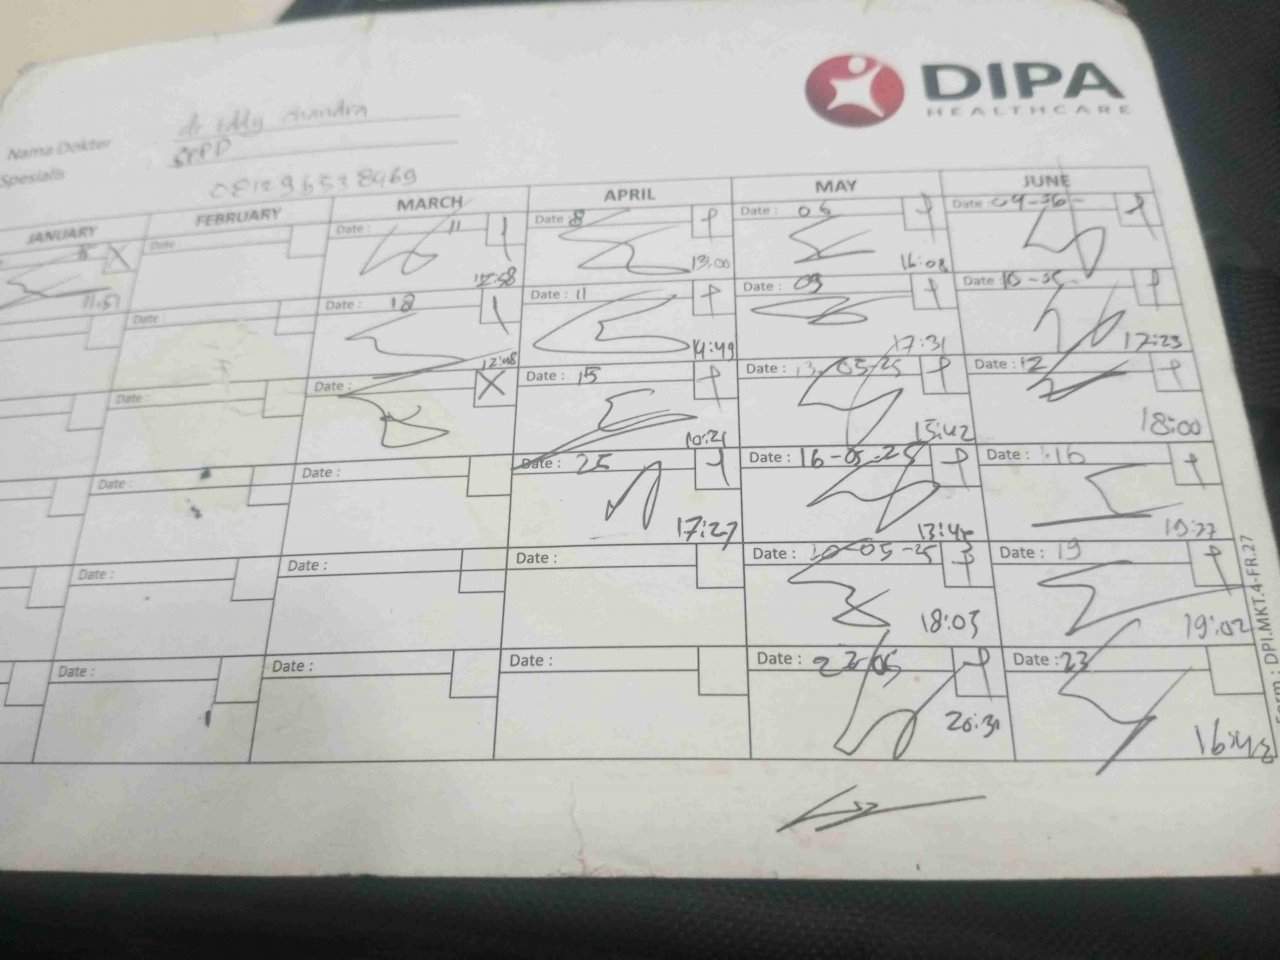 DIPA
HEALTHCARE
Nama Dokter dr Eddy
Spesialis SPPD
JANUARY FEBRUARY MARCH APRIL MAY JUNE
Date Date : 11 Date 8 Date : 05 Date 04-06-
11.51 12:58 13:00 16:08
Date : Date : 18 Date : 11 Date : 09 Date
12:48 14:49 17:31 17:23
Date : Date : Date : 15 Date : 13-05-25 Date : 12
10:21 15:42 18:00
Date : Date : Date : 25 Date : 16-05-25 Date : 16
17:27
Date : Date : Date : Date : 20-05-25 Date : 19
18:03 19:02
Date : Date : Date : Date : Date : 23
20:31 16:48
Form : DPI.MKT.4-FR.27